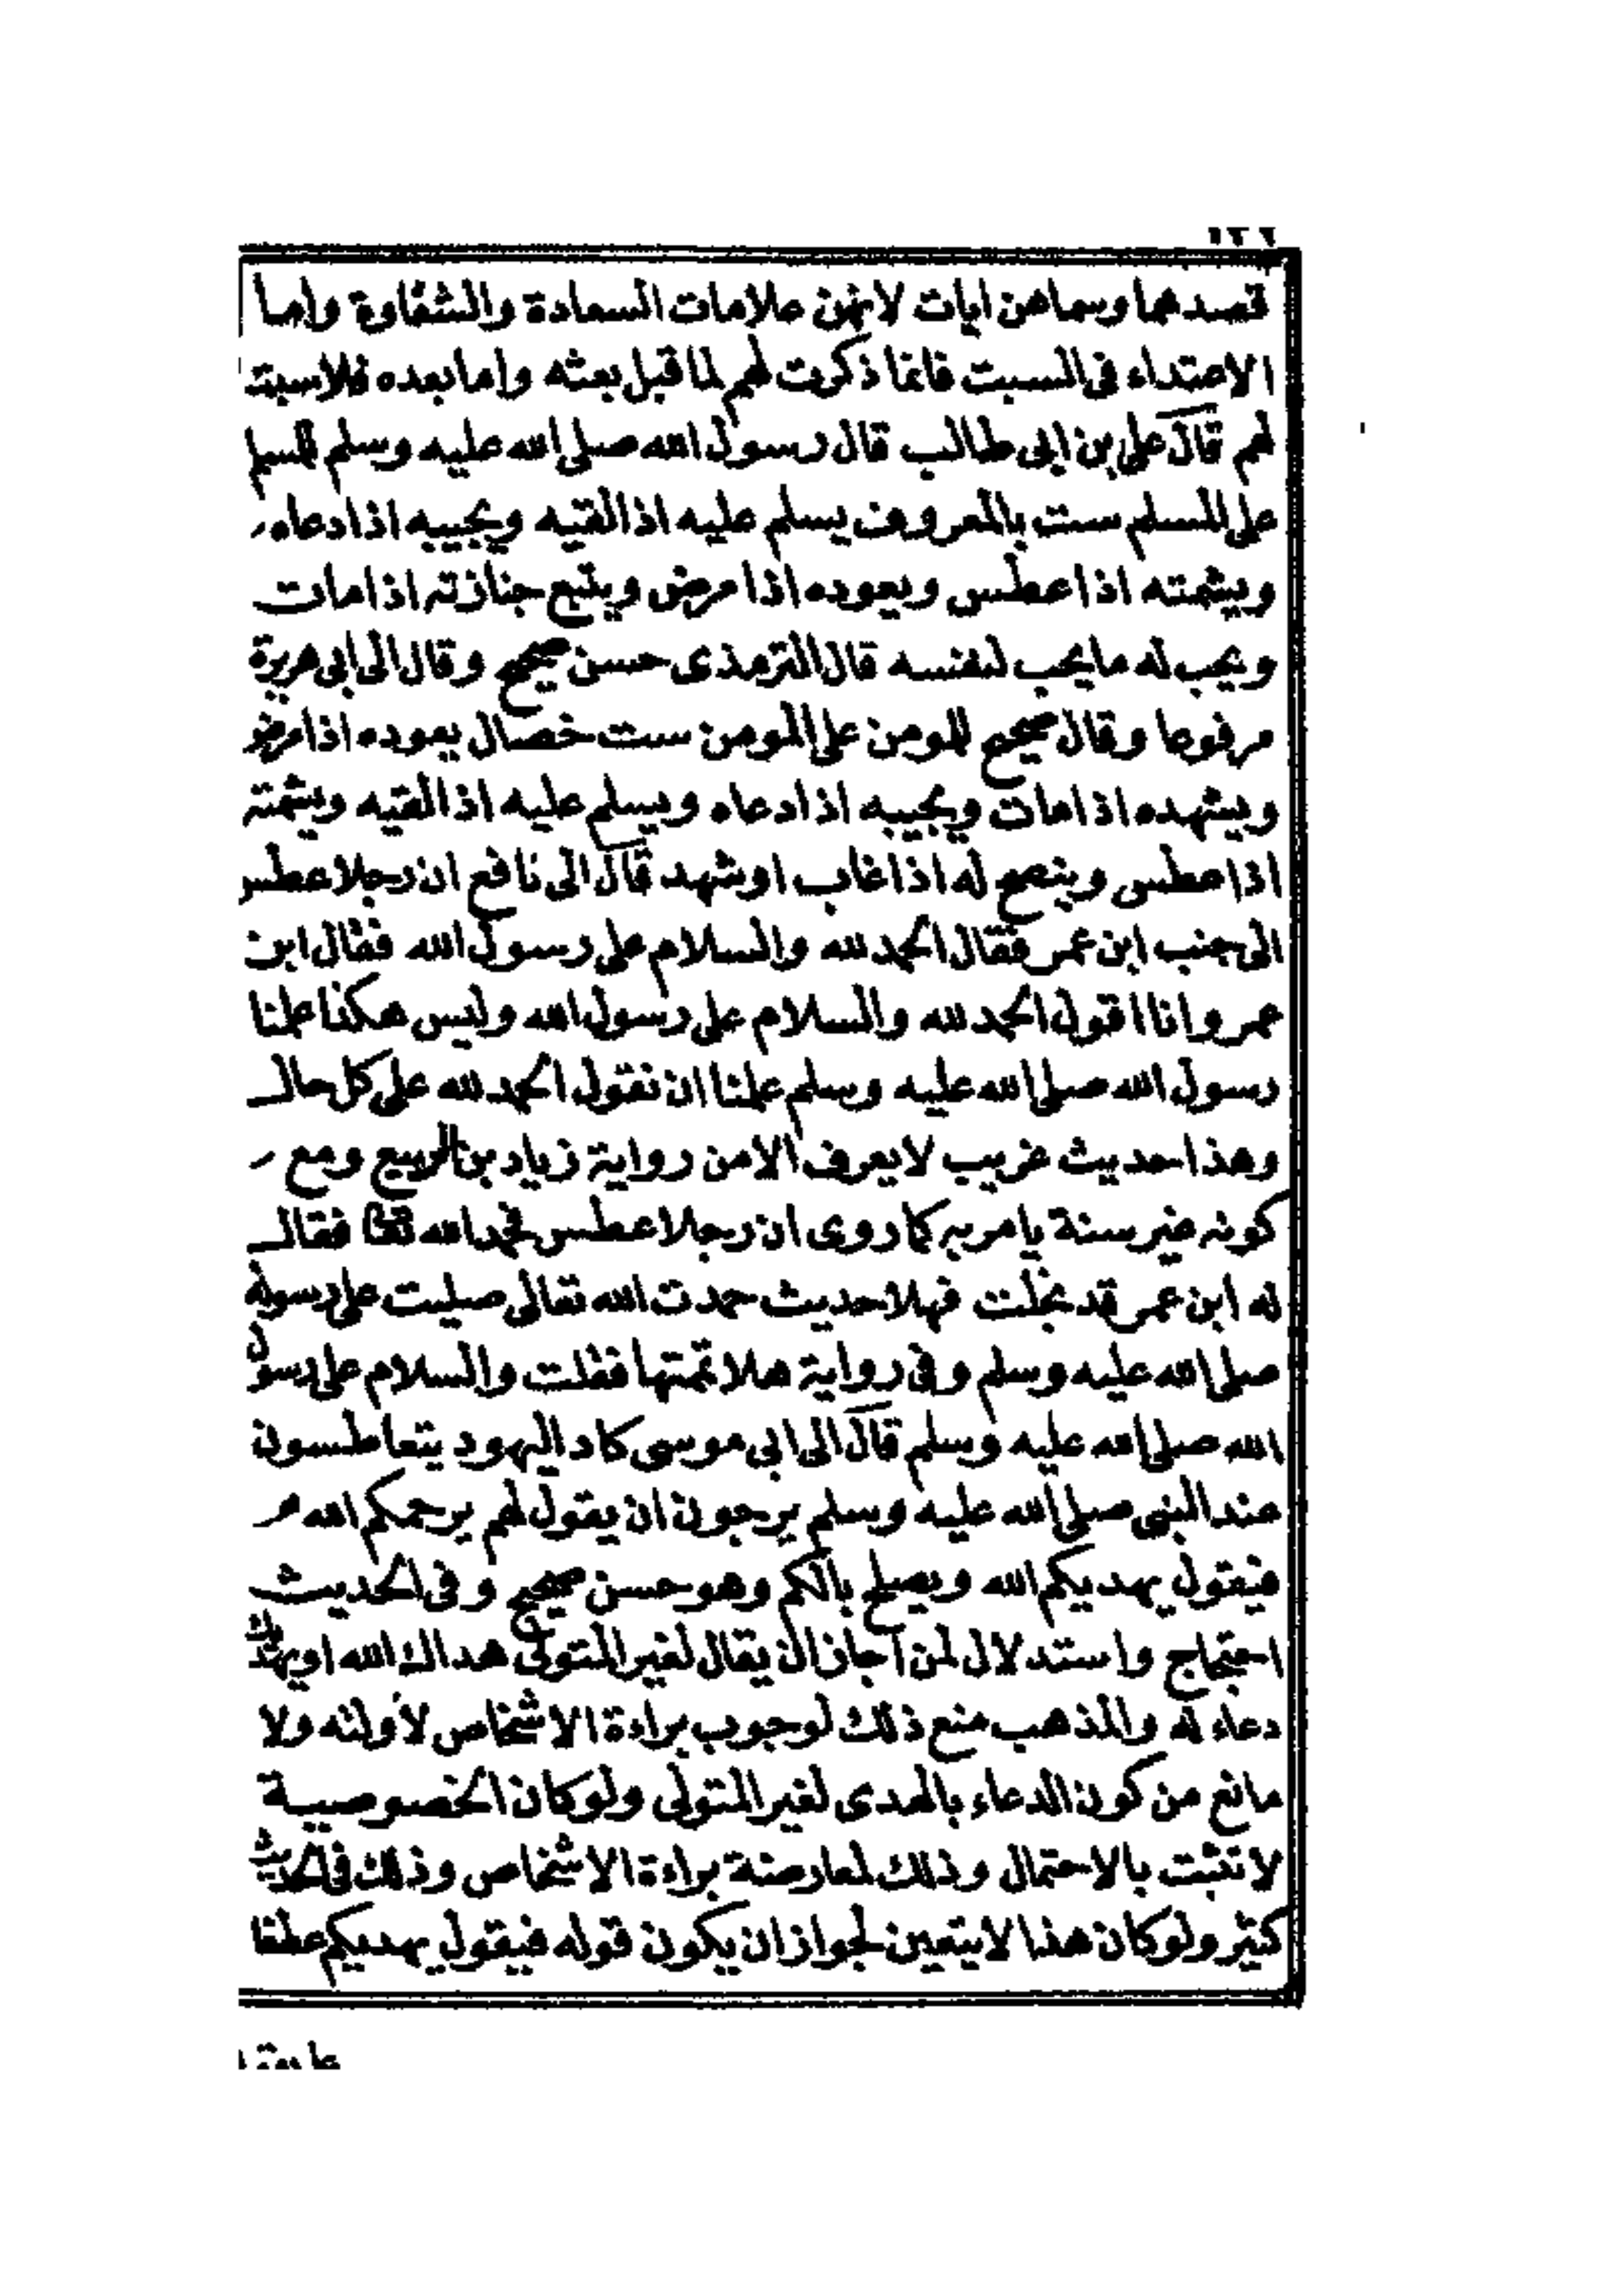 قصدهما وسماهن ايات لانهن علامات السعادة والشقاوة واما
الاعتداء فى السبت فانما ذكرت لهم لما قبل بعثه واما بعده فلا سبت
لهم قال على بن ابى طالب قال رسول الله صلى الله عليه وسلم للمسلم
على المسلم ست بالمعروف يسلم عليه اذا لقيه ويجيبه اذا دعاه
ويشمته اذا عطس ويعوده اذا مرض ويتبع جنازته اذا مات
ويحب له ما يحب لنفسه قال الترمذى حسن صحيح وقال الى ابى هريرة
مرفوعا وقال صحيح للمومن على المومن ست خصال يعوده اذا مرض
ويشهده اذا مات ويجيبه اذا دعاه ويسلم عليه اذا لقيه ويشمته
اذا عطس وينصح له اذا غاب او شهد قال الى نافع ان رجلا عطس
الى جنب ابن عمر فقال الحمد لله والسلام على رسول الله فقال ابن
عمر وانا اقول الحمد لله والسلام على رسول الله وليس هكذا علمنا
رسول الله صلى الله عليه وسلم علمنا ان نقول الحمد لله على كل حال
وهذا حديث غريب لا يعرف الا من رواية زياد بن الربيع ومع
كونه غير سنة يامر به كما روى ان رجلا عطس فحمد الله فقال
له ابن عمر قد بخلت فهلا حديث حمدت الله تعالى صليت على رسوله
صلى الله عليه وسلم وفى رواية هلا تممتها فقلت والسلام على رسول
الله صلى الله عليه وسلم قال الى ابى موسى كاد اليهود يتعاطسون
عند النبى صلى الله عليه وسلم يرجون ان يقول لهم يرحمكم الله
فيقول يهديكم الله ويصلح بالكم وهو حسن صحيح وفى الحديث
احتجاج واستدلال لمن اجاز ان يقال لغير المتولى هداك الله او يهديك
دعاء له والمذهب منع ذلك لوجوب براءة الاشخاص لأولئه ولا
مانع من كون الدعاء بالهدى لغير المتولى ولو كان الخصوصية
لا تثبت بالاحتمال وذلك لمعارضة براءة الاشخاص وذلك فى الحديث
كثير ولو كان هذا لا يتعين لجواز ان يكون قوله فيقول يهديكم عطفا